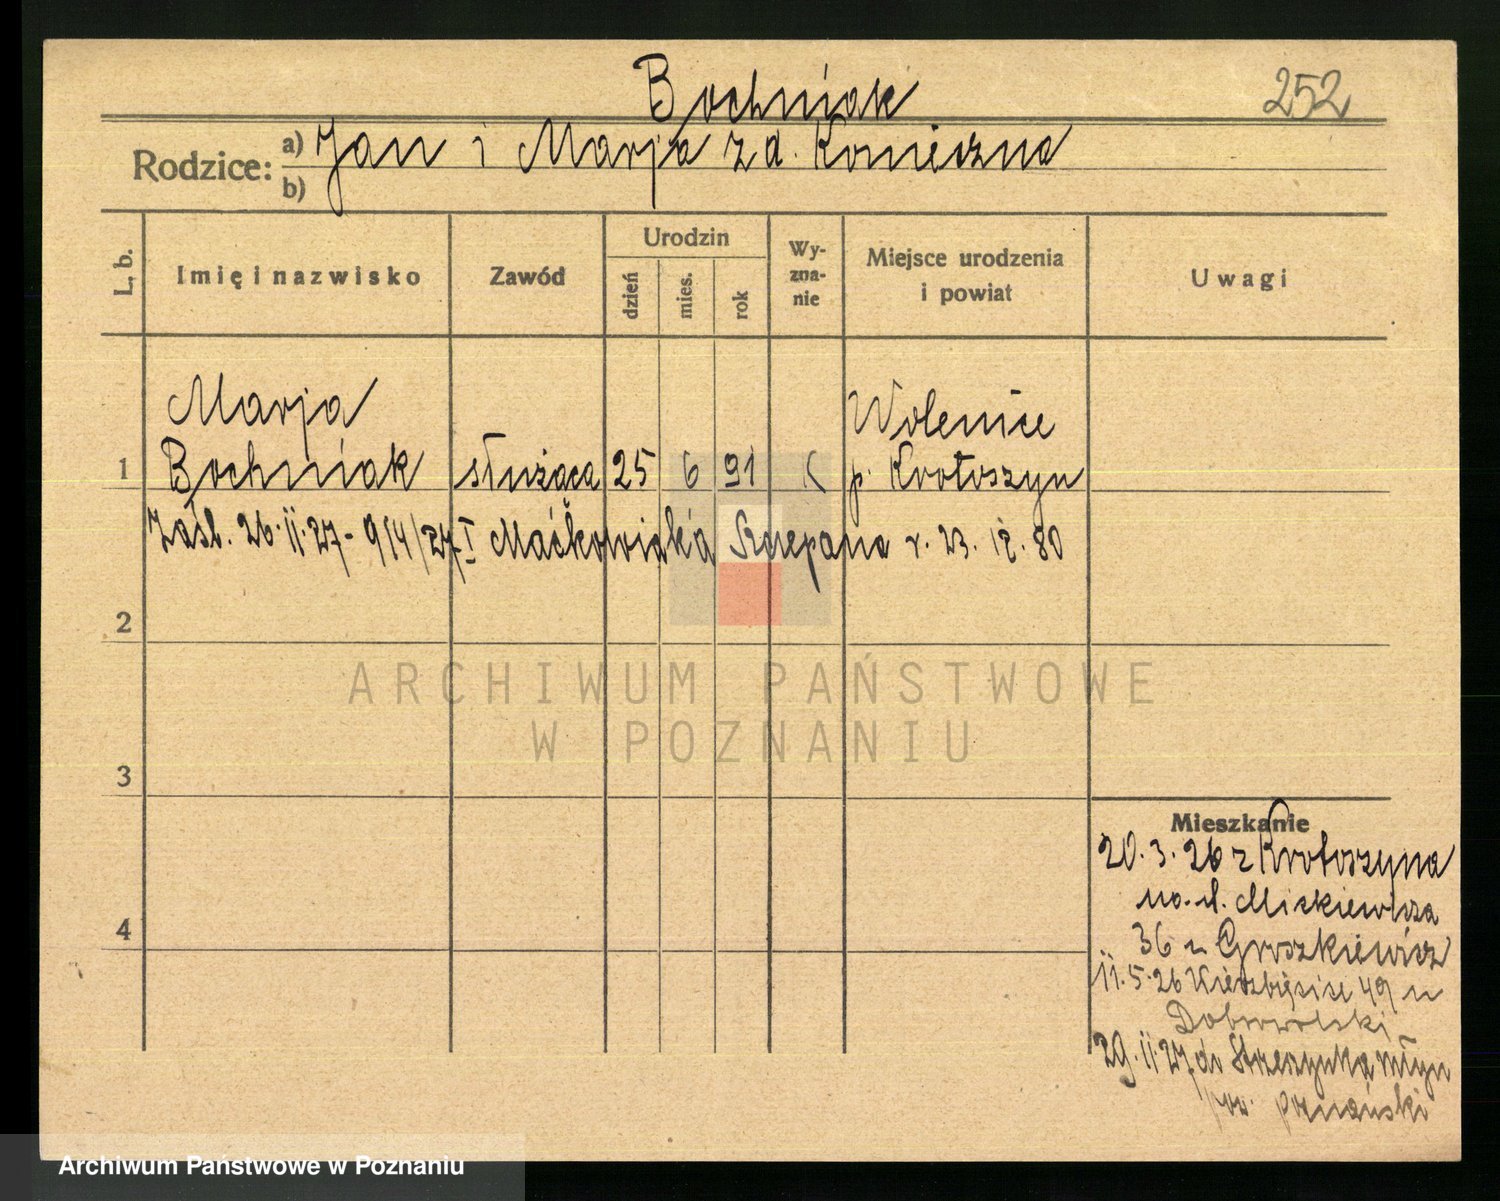 Bochniak
252
Rodzice: a) Jan i Marja zd. Konieczna
b)
L. b.
Imię i nazwisko
Zawód
Urodzin
dzień
mies.
rok
Wy-
zna-
nie
Miejsce urodzenia
i powiat
Uwagi
Marja
Wolenice
1 Bochniak służąca 25 6 91 k p. Krotoszyn
Zaśl. 26.11.27 - 914/27 I Maćkowiaka Szczepana r. 23. 12. 80
2
3
4
Mieszkanie
20.3.26 z Krotoszyna
na ul. Mickiewicza
36 u Groszkiewicz
11.5.26 Wierzbięcice 49 u
Dobrowolski
29.11.27 do Strzeszynka młyn
pow. poznański
ARCHIWUM PAŃSTWOWE
W POZNANIU
Archiwum Państwowe w Poznaniu